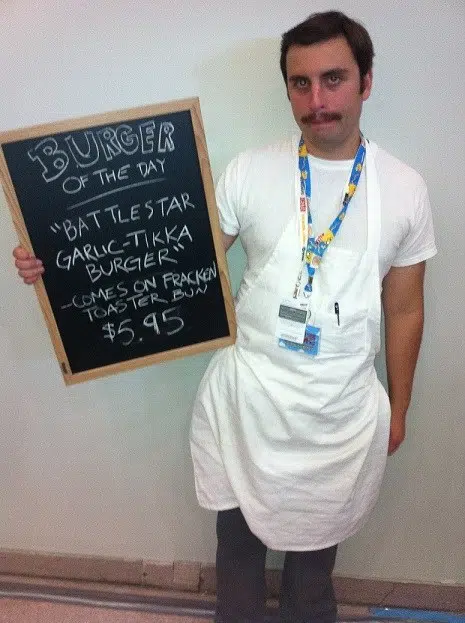 BURGER
OF THE DAY
"BATTLESTAR
GARLIC-TIKKA
BURGER"
-COMES ON FRACKEN
TOASTER BUN
$5.95